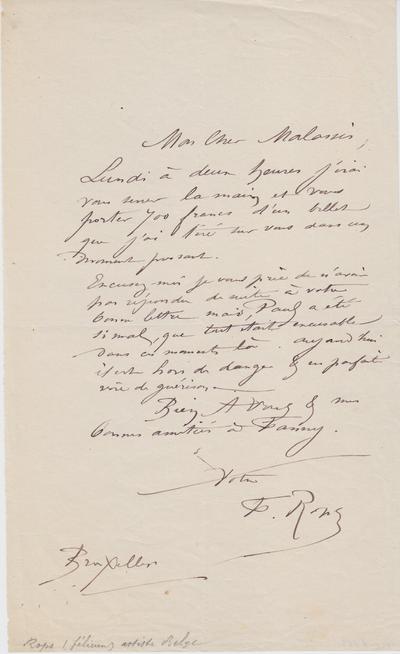 Mon Cher Malassis,
Lundi à deux heures j'irai
vous serrer la main et vous
porter 700 francs d'un billet
que j'ai tiré sur vous dans un
moment pressant.
Excusez-moi je vous prie de n'avoir
pas répondu de suite à votre
bonne lettre mais, Paul a été
si mal, que tout était excusable
dans ces moments là. aujourd'hui
il est hors de danger & en parfaite
voie de guérison.
Bien A Vous & mes
bonnes amitiés à Fanny.
Votre
F. Rops
Bruxelles
Rops (félicien) artiste Belge